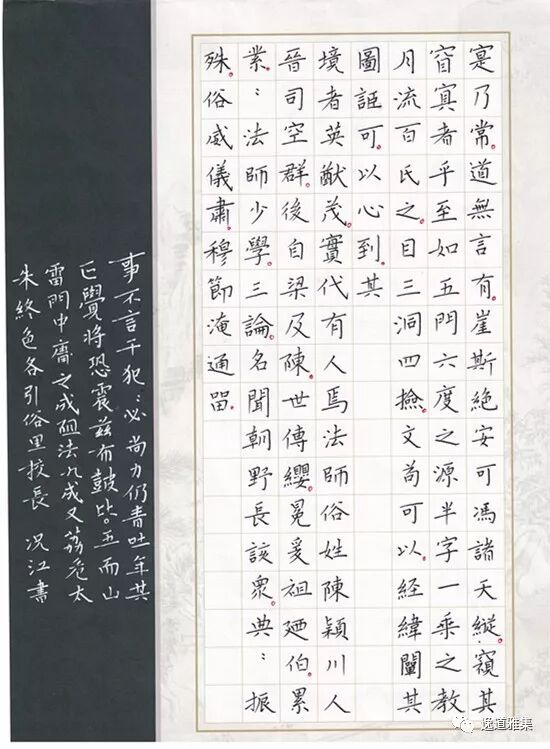 寔乃常道無言有崖斯絕安可馮諸天縱窺其
窅寘者乎至如五門六度之源半字一乘之教
月流百氏之目三洞四撿文苟可以經緯闡其
圖詎可以心到其
境者英猷茂實代有人焉法師俗姓陳潁川人
晉司空群後自梁及陳世傳纓冕爰祖廼伯累
業：法師少學三論名聞朝野長該衆典：振
殊俗威儀肅穆節淹通留
事不言干犯：必尚力仍青吐年其
覺將恐震茲布鼓五而山
雷門中庸之成法九成又荔危太
朱終色各引俗里校長 況江書
逸道雅集